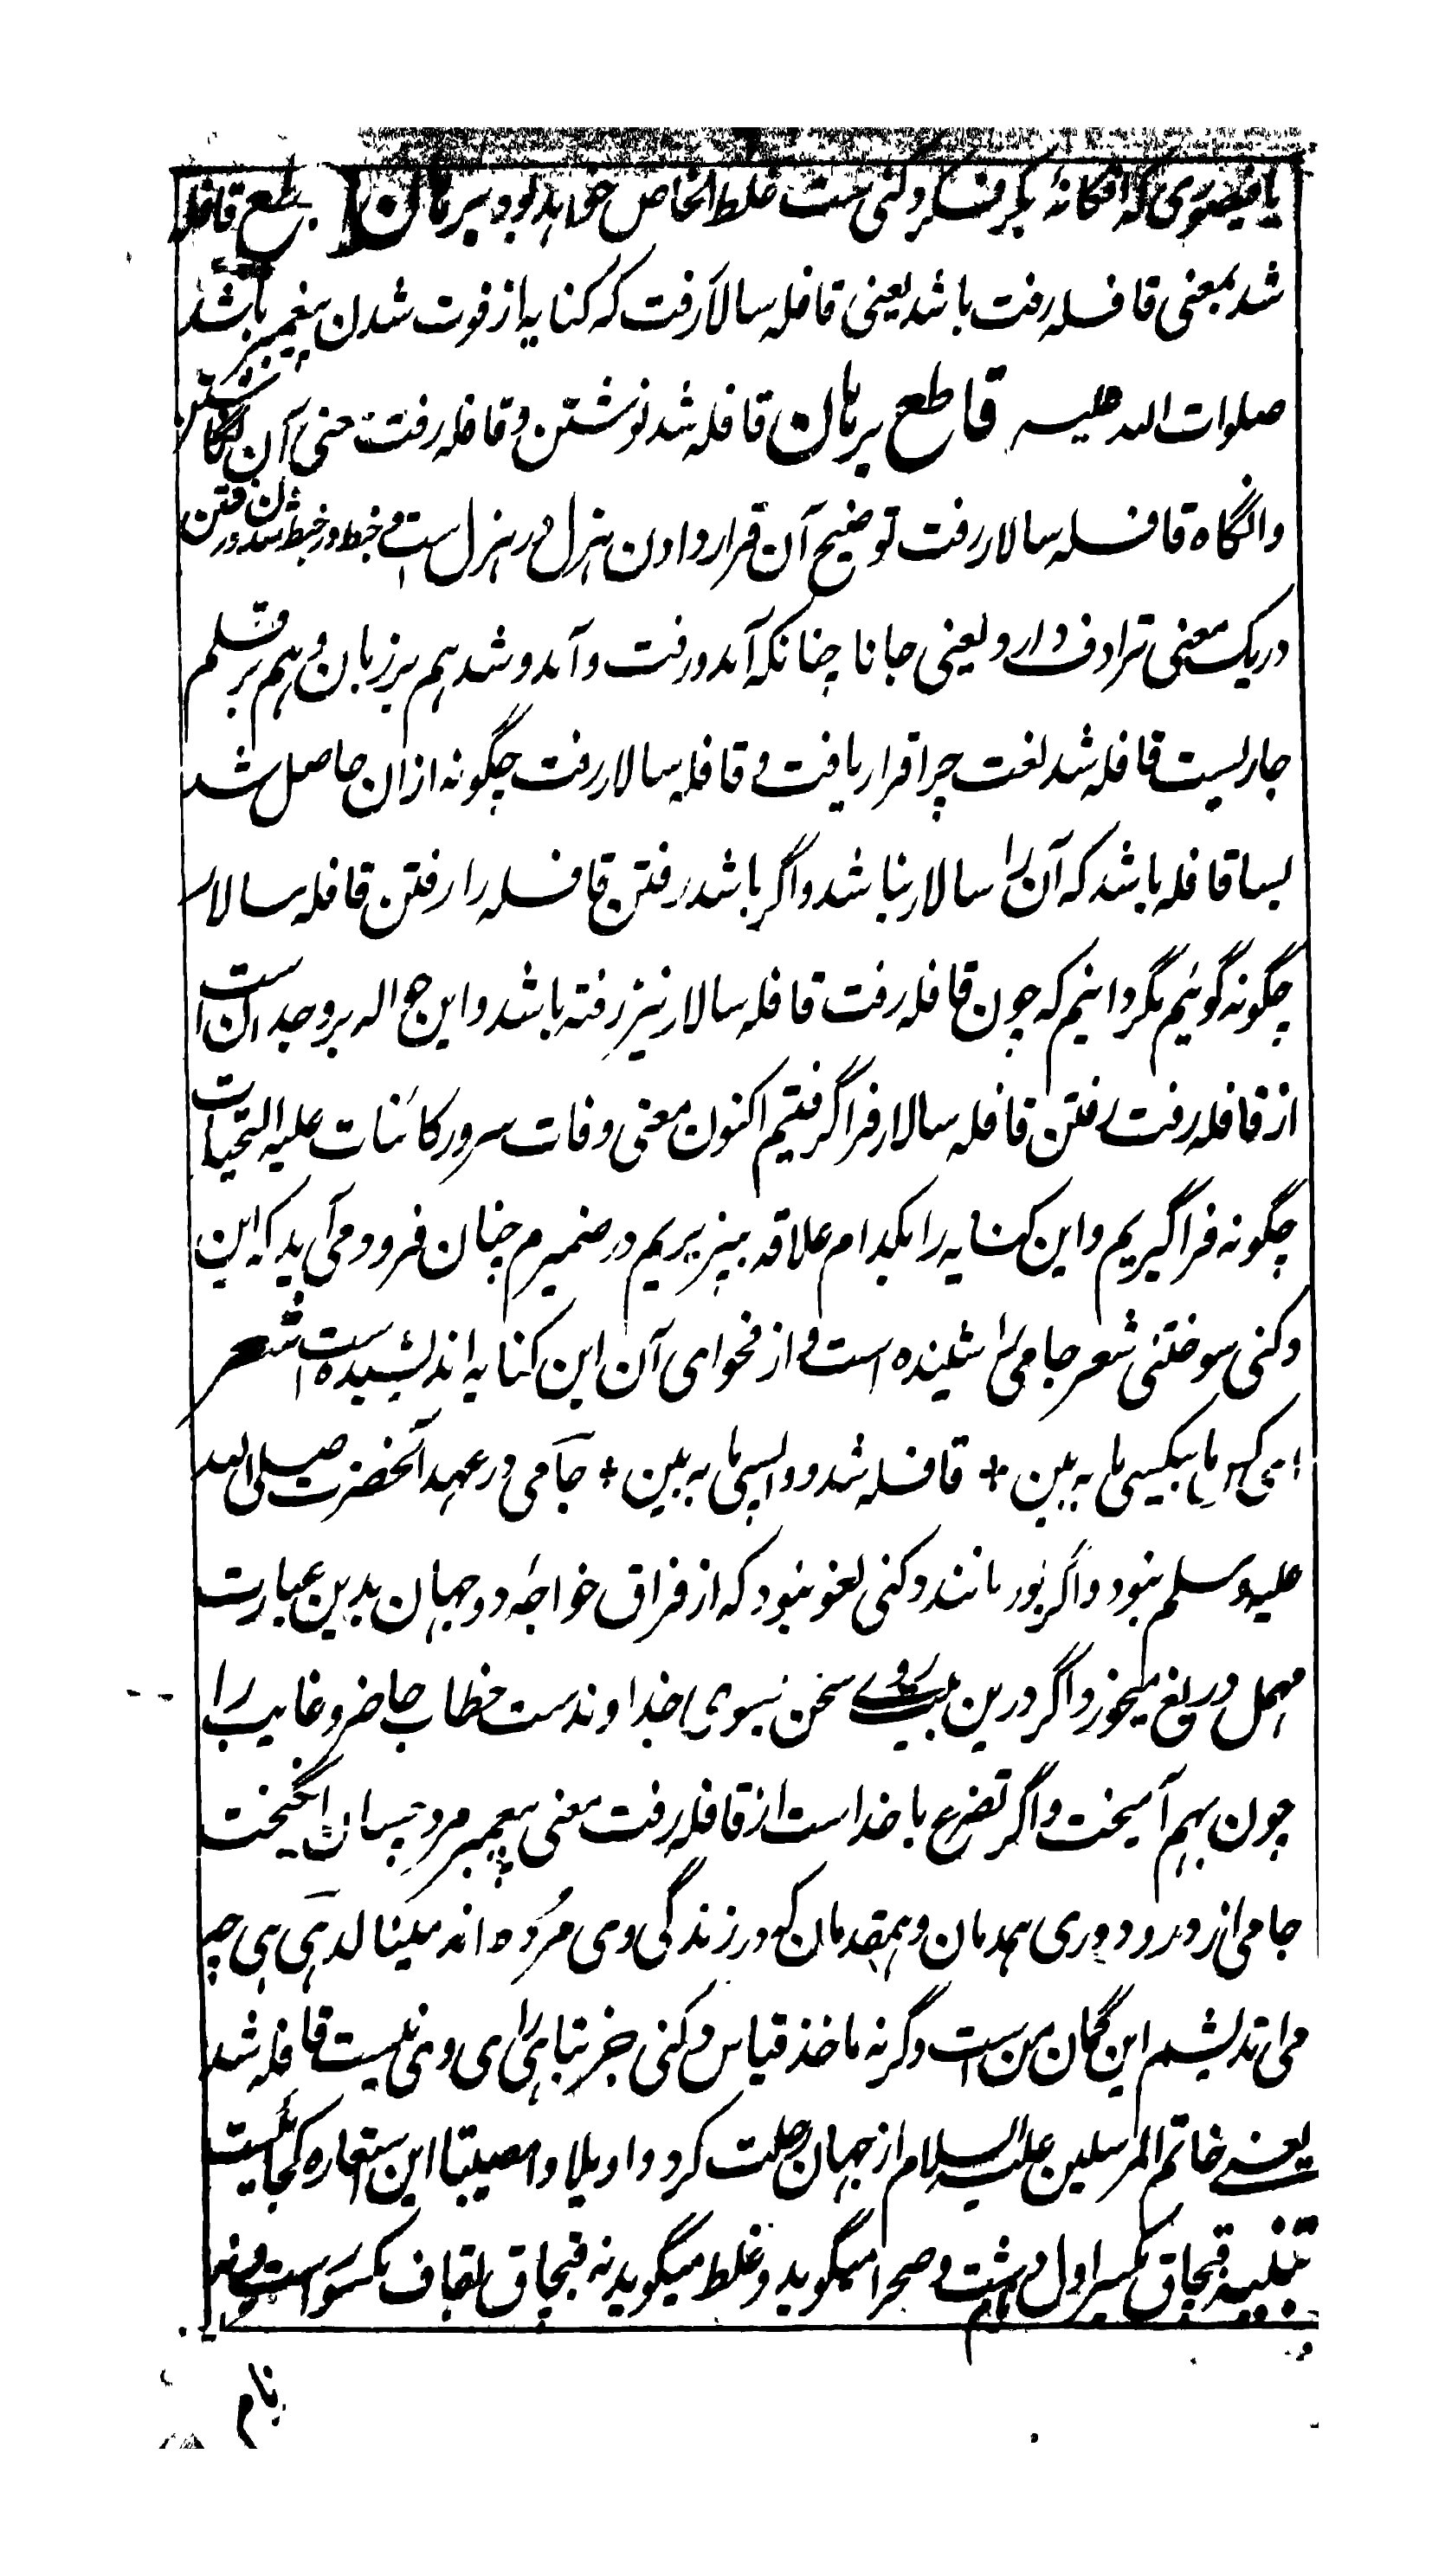 یا قیصوری که افگانهٔ بکر فکر دکنی ست غلط الخاص خواهد بود برهان قاطع قافله
شد بمعنی قافله رفت باشد یعنی قافله سالار رفت که کنایه از فوت شدن پیغمبر باشد
صلوات الله علیه قاطع برهان قافله شد نوشتن و قافله رفت معنی آن نگاشتن
وانگاه قافله سالار رفت توضیح آن قرار دادن هزل در هزل است و خبط در خبط شدن و رفتن
در یک معنی ترادف دارد یعنی جانا چنانکه آمد و رفت و آمد و شد هم بر زبان و هم بر قلم
جاریست قافله شد لغت چرا قرار یافت و قافله سالار رفت چگونه ازان حاصل شد
بسا قافله باشد که آن را سالار نباشد و اگر باشد رفتن قافله را رفتن قافله سالار
چگونه گوئیم مگر دانیم که چون قافله رفت قافله سالار نیز رفته باشد و این حواله بر وجدان است
از قافله رفت رفتن قافله سالار فرا گرفتیم اکنون معنی وفات سرور کائنات علیه التحیات
چگونه فرا گیریم و این کنایه را بکدام علاقه بپذیریم در ضمیرم چنان فرود می آید که این
دکنی سوختنی شعر جامی را شنیده است و از فحوای آن این کنایه اندیشیده است شعر
ای کس ما بیکسی ما به بین + قافله شد و واپسی ما به بین + جامی در عهد آنحضرت صلی الله
علیه وسلم نبود و اگر بود مانند دکنی لغو نبود که از فراق خواجهٔ دو جهان بدین عبارت
مهمل دریغ میخورد اگر درین بیت روی سخن بسوی خداوندست خطاب حاضر و غایب را
چون بهم آمیخت و اگر تضرع با خداست از قافله رفت معنی پیغمبر مرد چسان انگیخت
جامی از درد دوری همدمان و همقدمان که در زندگی وی مرده اند مینالد هی هی چه
می اندیشم این گمان من است وگرنه ماخذ قیاس دکنی جز تباهی رای وی نیست قافله شد
یعنے خاتم المرسلین علیه السلام از جهان رحلت کرد واویلا وامصیبتا این استعاره کجائیست
تنبیه قبچاق بکسر اول دشت و صحرا میگوید و غلط میگوید نه قبچاق بقاف مکسور است و نه
نام